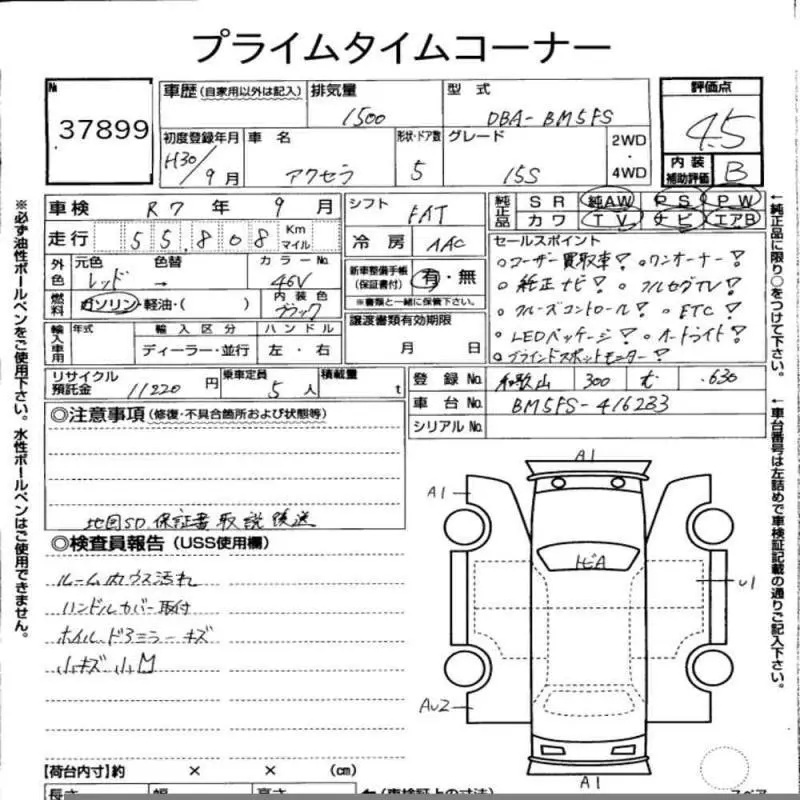 プライムタイムコーナー
№
37899
車歴 (自家用以外は記入)
排気量
1500
型式
DBA-BM5FS
評価点
4.5
初度登録年月
H30/9月
車名
アクセラ
形状・ドア数
5
グレード
15S
2WD
・
4WD
内装
補助評価
B
車検 R7年 9月
走行 55,808 Km
マイル
シフト
FAT
冷房 AAC
純正品
SR 純AW PS PW
カワ TV ナビ エアB
外色
元色 色替 カラーNo.
レッド → 46V
燃料
ガソリン・軽油・( )
内装色
ブラック
新車整備手帳
(保証書付)
有・無
※書類と一緒に保管下さい。
セールスポイント
○ユーザー買取車! ○ワンオーナー!
○純正ナビ! ○フルセグTV!
○クルーズコントロール! ○ETC!
○LEDパッケージ! ○オートライト!
○ブラインドスポットモニター!
輸入車用
年式 輸入区分 ハンドル
ディーラー・並行 左・右
譲渡書類有効期限
月 日
リサイクル
預託金
11220円
乗車定員
5人
積載量
t
登録No. 和歌山 300 む .630
車台No. BM5FS-416233
シリアルNo.
◎注意事項 (修復・不具合箇所および状態等)
地図SD.保証書取説後送
◎検査員報告 (USS使用欄)
ルーム内ウス汚れ
ハンドルカバー取付
ホイルドアミラーキズ
小キズ小M
A1
A1
トビA
U1
AU2
A1
【荷台内寸】約 × × (cm)
長さ 幅 高さ
←(車検証上の寸法)
スペア
※必ず油性ボールペンをご使用下さい。水性ボールペンはご使用できません。
←純正品に限り○をつけて下さい。
←車台番号は左詰めで車検証記載の通りご記入下さい。